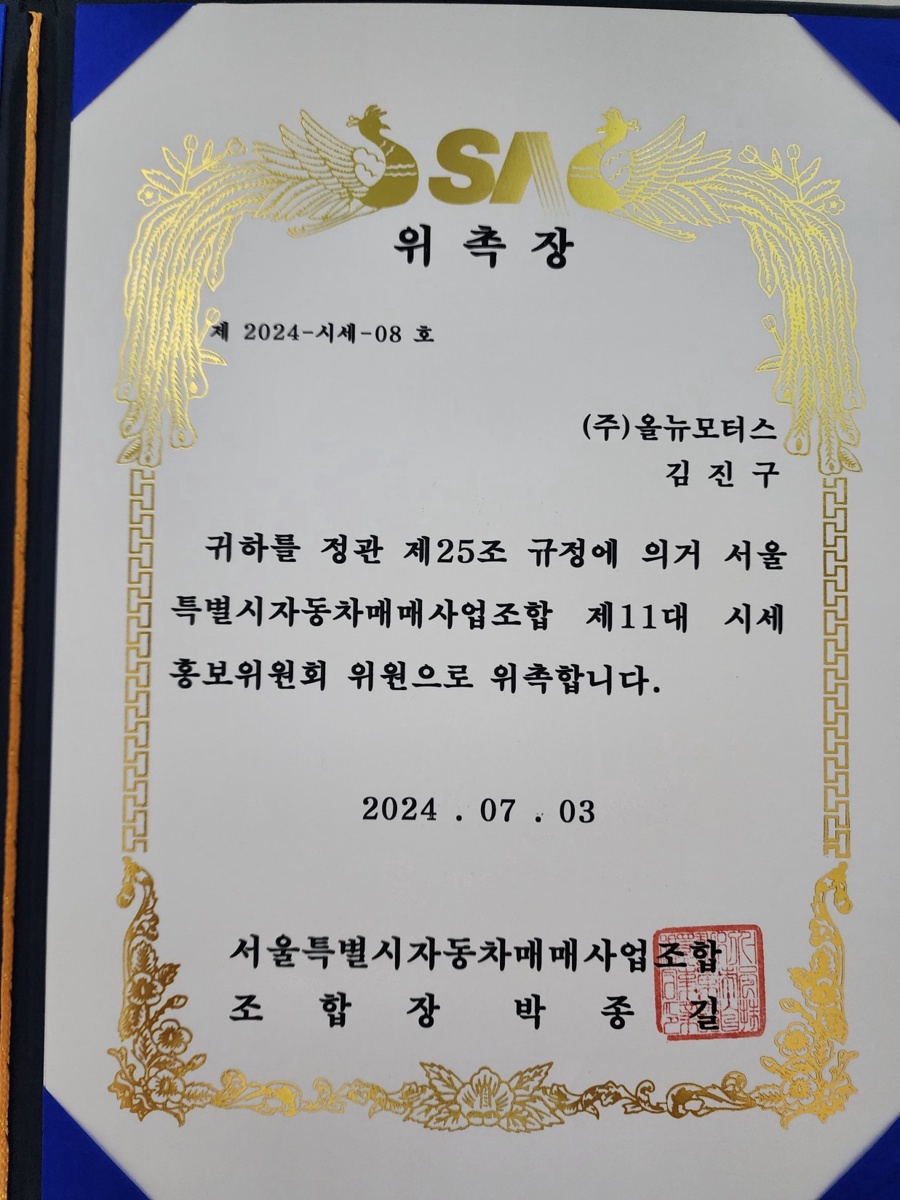 SA
위 촉 장
제 2024-시세-08 호
(주)올뉴모터스
김 진 구
귀하를 정관 제25조 규정에 의거 서울
특별시자동차매매사업조합 제11대 시세
홍보위원회 위원으로 위촉합니다.
2024 . 07 . 03
서울특별시자동차매매사업조합
조 합 장 박 종 길